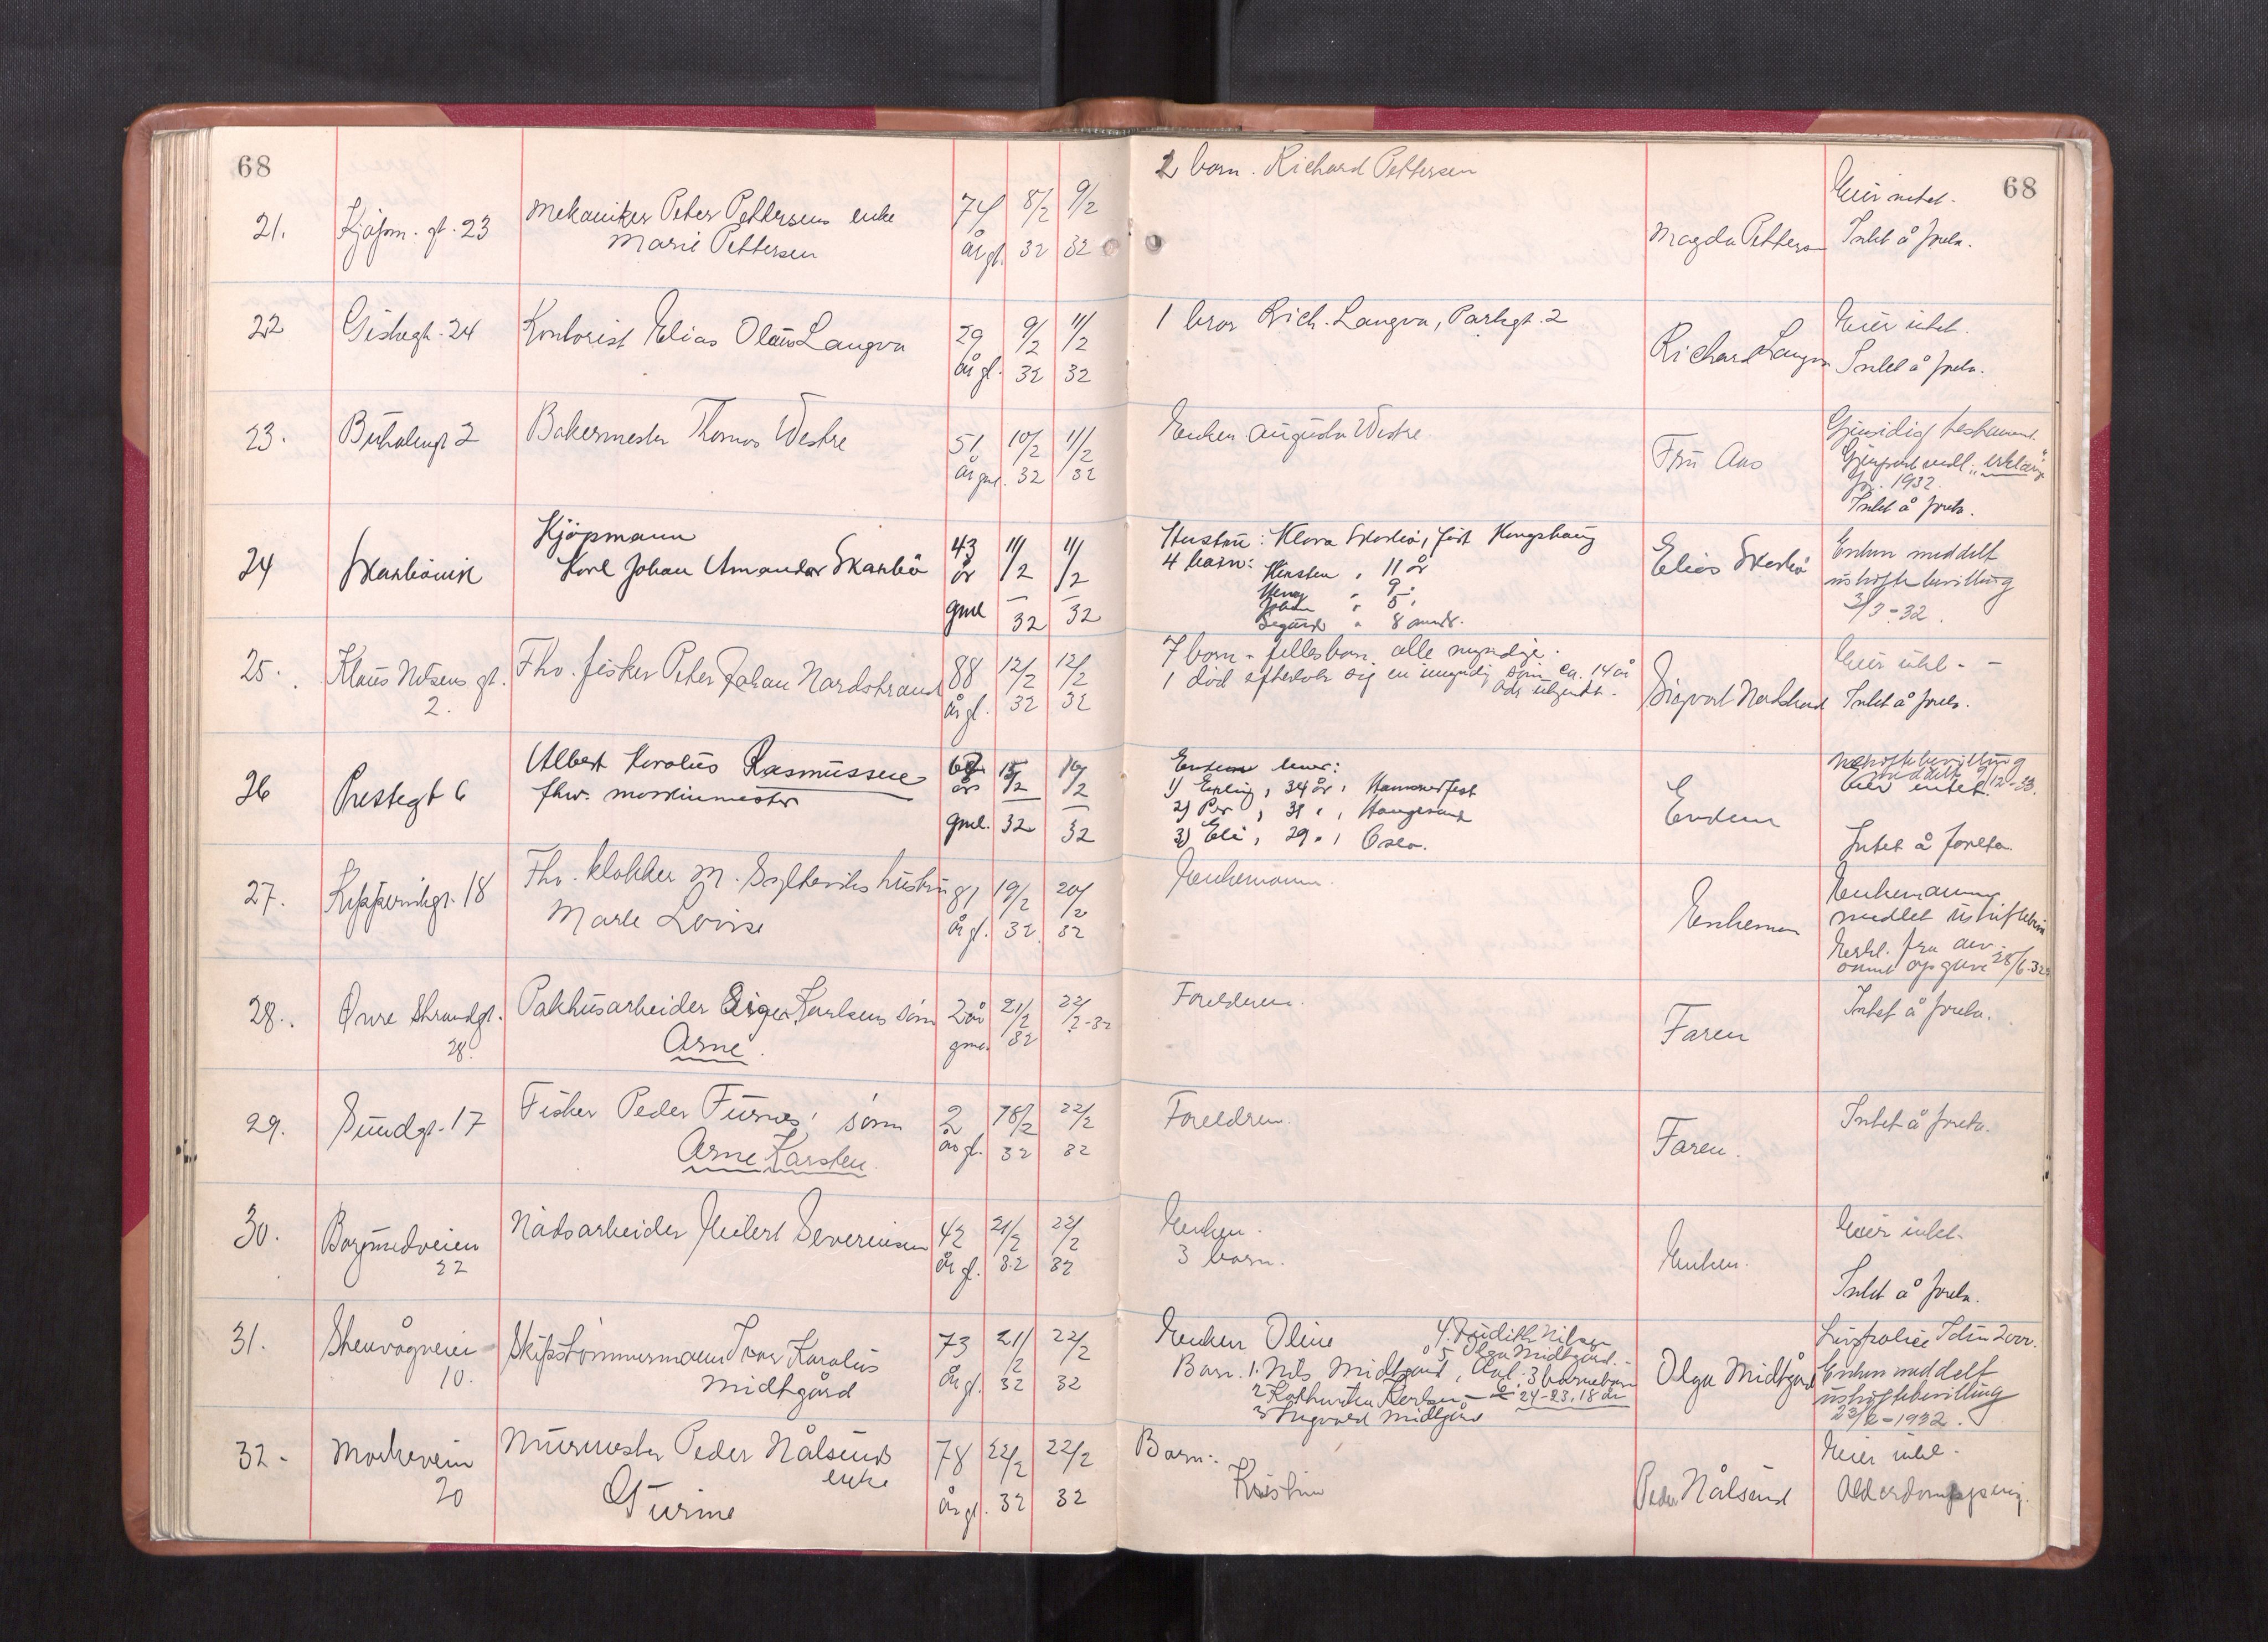 68
68
21. Kjøpm. gt. 23 Mekaniker Peter Pettersens enke 74 8/2 9/2 2 barn. Richard Pettersen Eier intet.
Marie Pettersen år gl. 32 32 Magda Pettersen Intet å foreta.
22 Giskegt. 24 Kontorist Elias Olaus Langva 29 9/2 11/2 1 bror Rich. Langva, Parkgt. 2 Eier intet.
år gl. 32 32 Richard Langva Intet å foreta.
23. Buholmgt 2 Bakermester Thomas Westre 51 10/2 11/2 Enken Augusta Westre Gjensidig testament.
år gml. 32 32 Fru Aas Gjenpart vedl. "erklæring"
1932.
Intet å foreta.
24 Skarbøvik Kjøpmann 43 11/2 11/2 Hustru: Klara Skarbø, født Kongshaug Elias Skarbø Enken meddelt
Karl Johan Amandar Skarbø år 4 barn: 11 år uskiftebevilling
gml 32 32 " 9 " 3/3-32.
Johan " 5 "
Sigurd " 8 mndr.
25. Klaus Nilsens gt. Fhv. fisker Peter Johan Nordstrand 88 12/2 12/2 7 barn - fellesbarn alle myndige. Eier intet -
2. år gl. 32 32 1 død efterlater sig en umyndig sønn ca. 14 år Sigvart Nordstrand Intet å foreta.
26 Prestegt 6 Albert Karolus Rasmussen 15/2 16/2 Enken Uskiftebevilling
fhv. maskinmester år 1) Erling, 34 år, Hammerfest meddelt 9/12-33.
gml. 32 32 2) Per, 31 ", Haugesund Enken Eier intet.
3) Eli, 29 ", Oslo. Intet å foreta.
27. Kipperviksgt. 18 Fhv. klokker M. Sylteviks hustru 81 19/2 20/2 Enkemann. Enkemann Enkemannen
Marte Lovise år gl. 32 32 meddelt uskiftebev.
fra
opgave 28/6-32
28. Øvre Strandgt. Pakhusarbeider Birger Karlsens sønn 2 år 21/2 22/2-32 Foreldrene. Intet å foreta.
28. Arne. gml. 32 Faren
29. Sundgt. 17 Fisker Peder Furnes' sønn 2 18/2 22/2 Foreldrene. Intet å foreta.
Arne Karsten. år gl. 32 32 Faren.
30. Borgundveien Nådsarbeider Meilert Severinsen 42 21/2 22/2 Enken. Enken. Eier intet.
22 år gl. 32 32 3 barn. Intet å foreta.
31. Stenvågveien Skipstømmermann Ivar Karolus 73 21/2 22/2 Enken Oline 4. Judith Nilsen Livspolise 2000.
10. Midtgård år gl. 32 32 5 Olga Midtgård. Olga Midtgård Enken meddelt
Barn. 1. Nils Midtgård, 3 barnebarn uskiftebevilling
2 24-23, 18 år 23/2-1932.
3 Ingvard Midtgård
32. Morkaveien Murmester Peder Nålsunds 78 22/2 22/2 Barn: Eier intet.
20 enke år gl. 32 32 Kristine Peder Nålsund Alderdomspeng.
Gurine